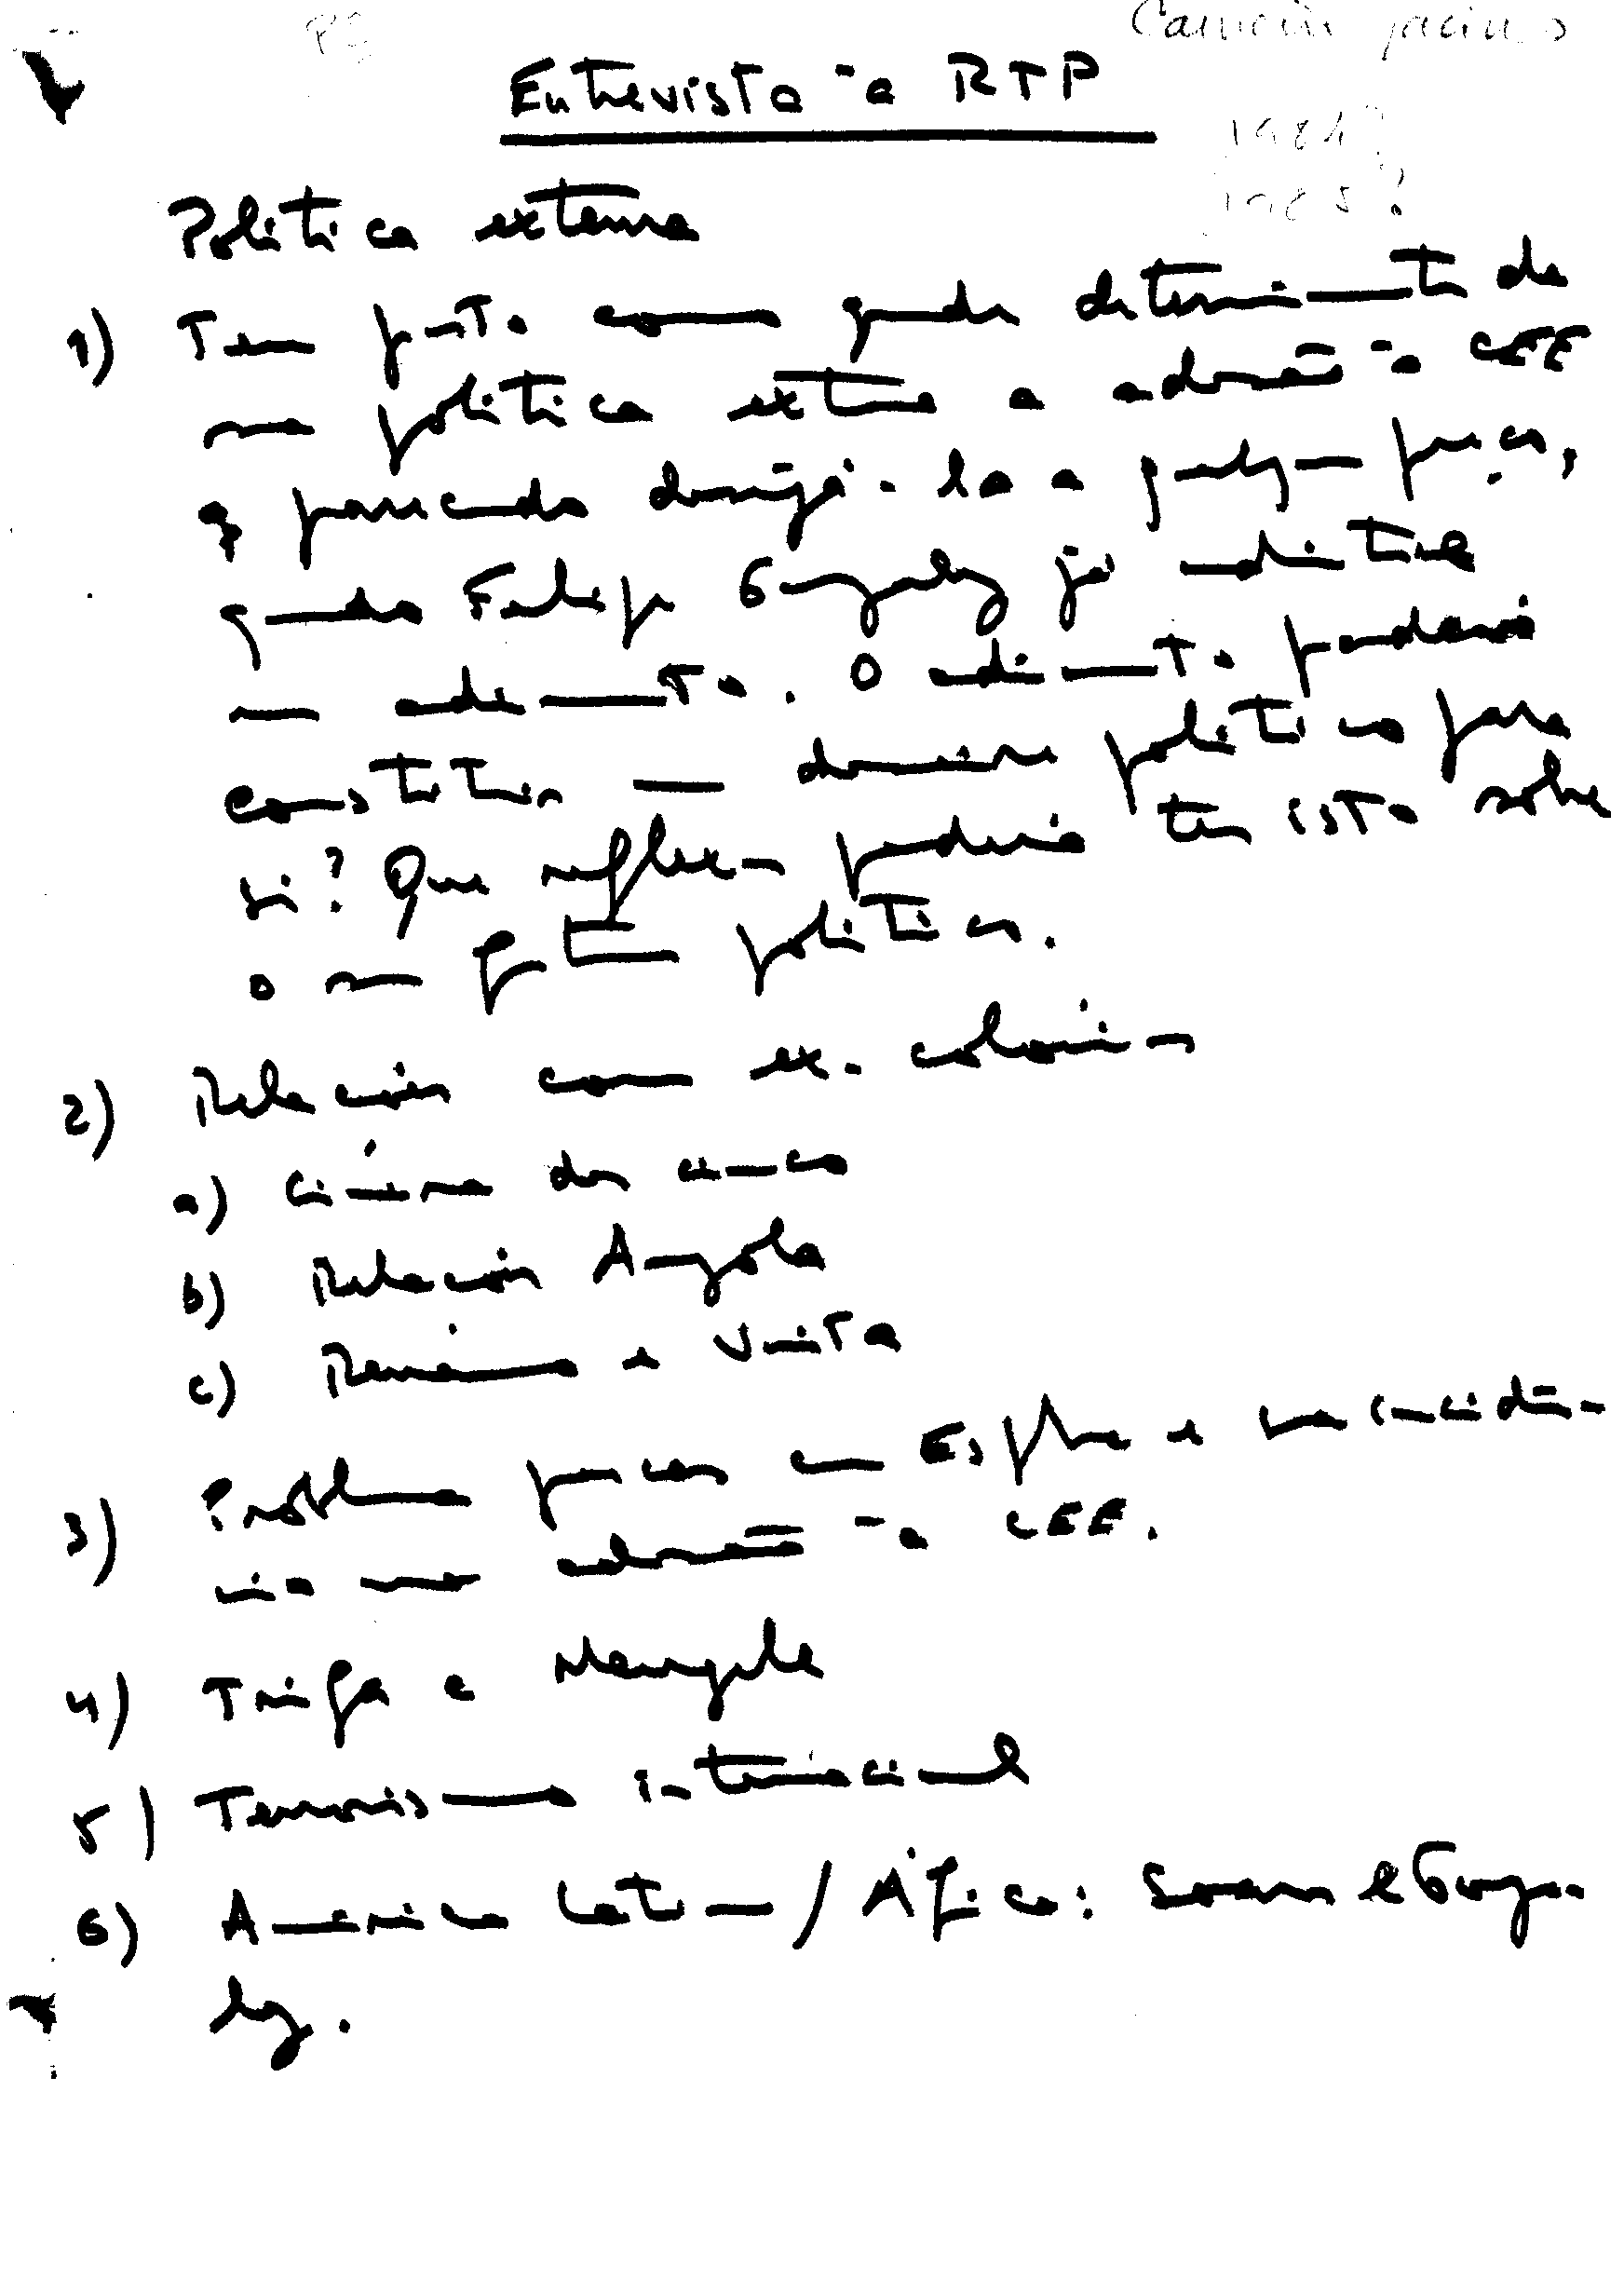 PS
Entrevista à RTP
1984?
1985?
Politica externa
1) Tem feito como grande determinante da
sua politica externa a adesão à CEE
q parecendo desejá-la a qualquer preço,
quando Felipe Gonzalez já admitiu
um adiamento. O adiamento poderia
constituir um desaire politico para
si? Que reflexos poderia ter isto sobre
o seu futuro politico.
2) Relações com ex-colonias
a) Cimeira dos cinco
b) Relações Angola
c) Renamo e Unita
3) Problemas pescas com Espanha e sua incidên-
cia na adesão à CEE.
4) Trigo e
5) Terrorismo internacional
6) America Latina / África: Soares e Gonza-
lez.